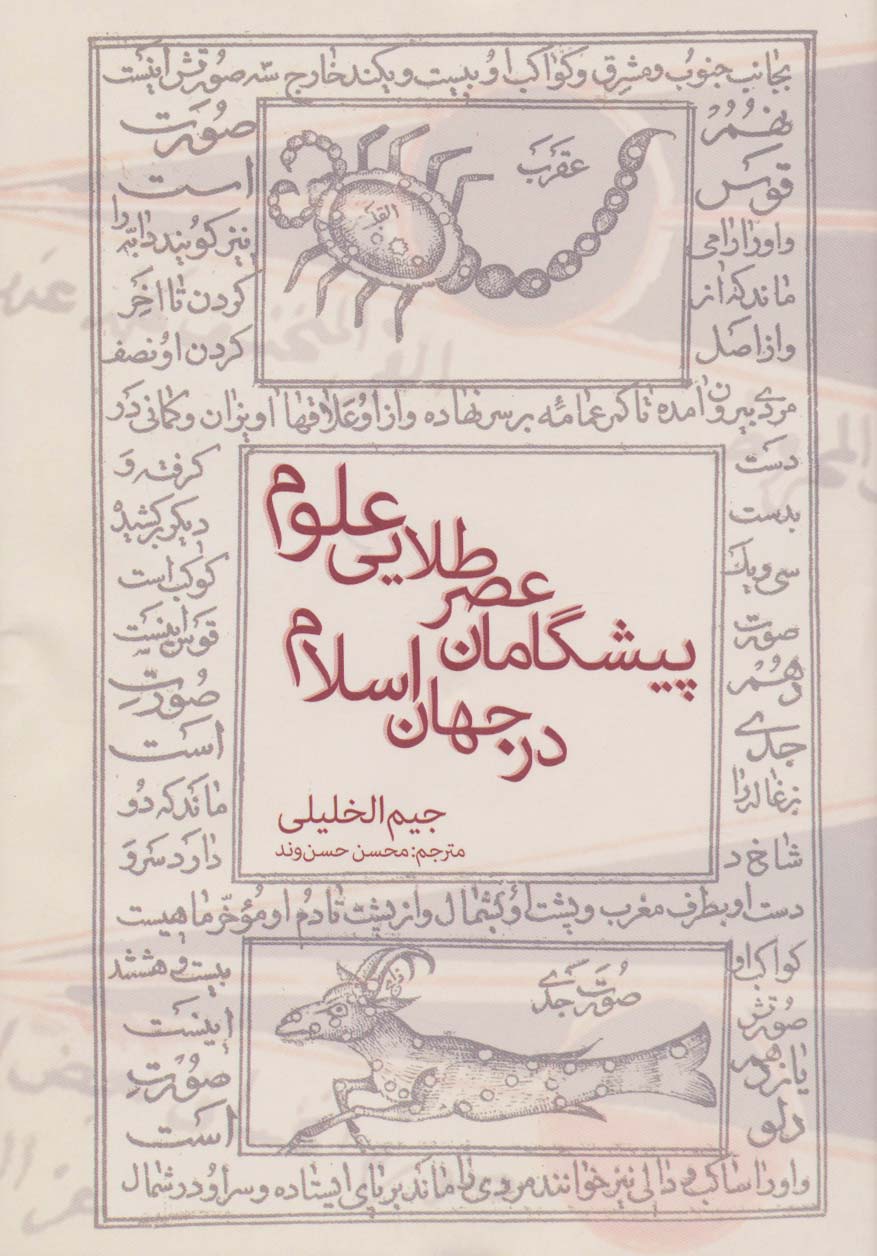 بجانب جنوب و مشرق و کواکب او بیست و یکند خارج سه صورتش اینست
نهم صورت
قوس است
و او را رامی نیز گویند دابه را
ماند که از کردن تا اخر
و از اصل کردن او نصف
عقرب
القلب
مردی بیرون امده تا کمر عمامه بر سر نهاده و از او علاقها اویزان و کمانی در
دست گرفته و
بدست دیگر کشیده
سی و یک کوکب است
صورت قوس اینست
دهم صورت
جدی است
بزغاله را ماند که دو
شاخ دارد سر و
علوم
طلایی
عصر
پیشگامان
اسلام
در جهان
جیم الخلیلی
مترجم: محسن حسن‌وند
دست او بطرف مغرب و پشت او بشمال و از پشت تا دم او مؤخر ماهیست
کواکب او بیست و هشتند
صورتش اینست
یازدهم صورت
دلو است
صورت جدی
و او را ساکب و دالی نیز خوانند مردی را ماند بر پای ایستاده و سر او در شمال